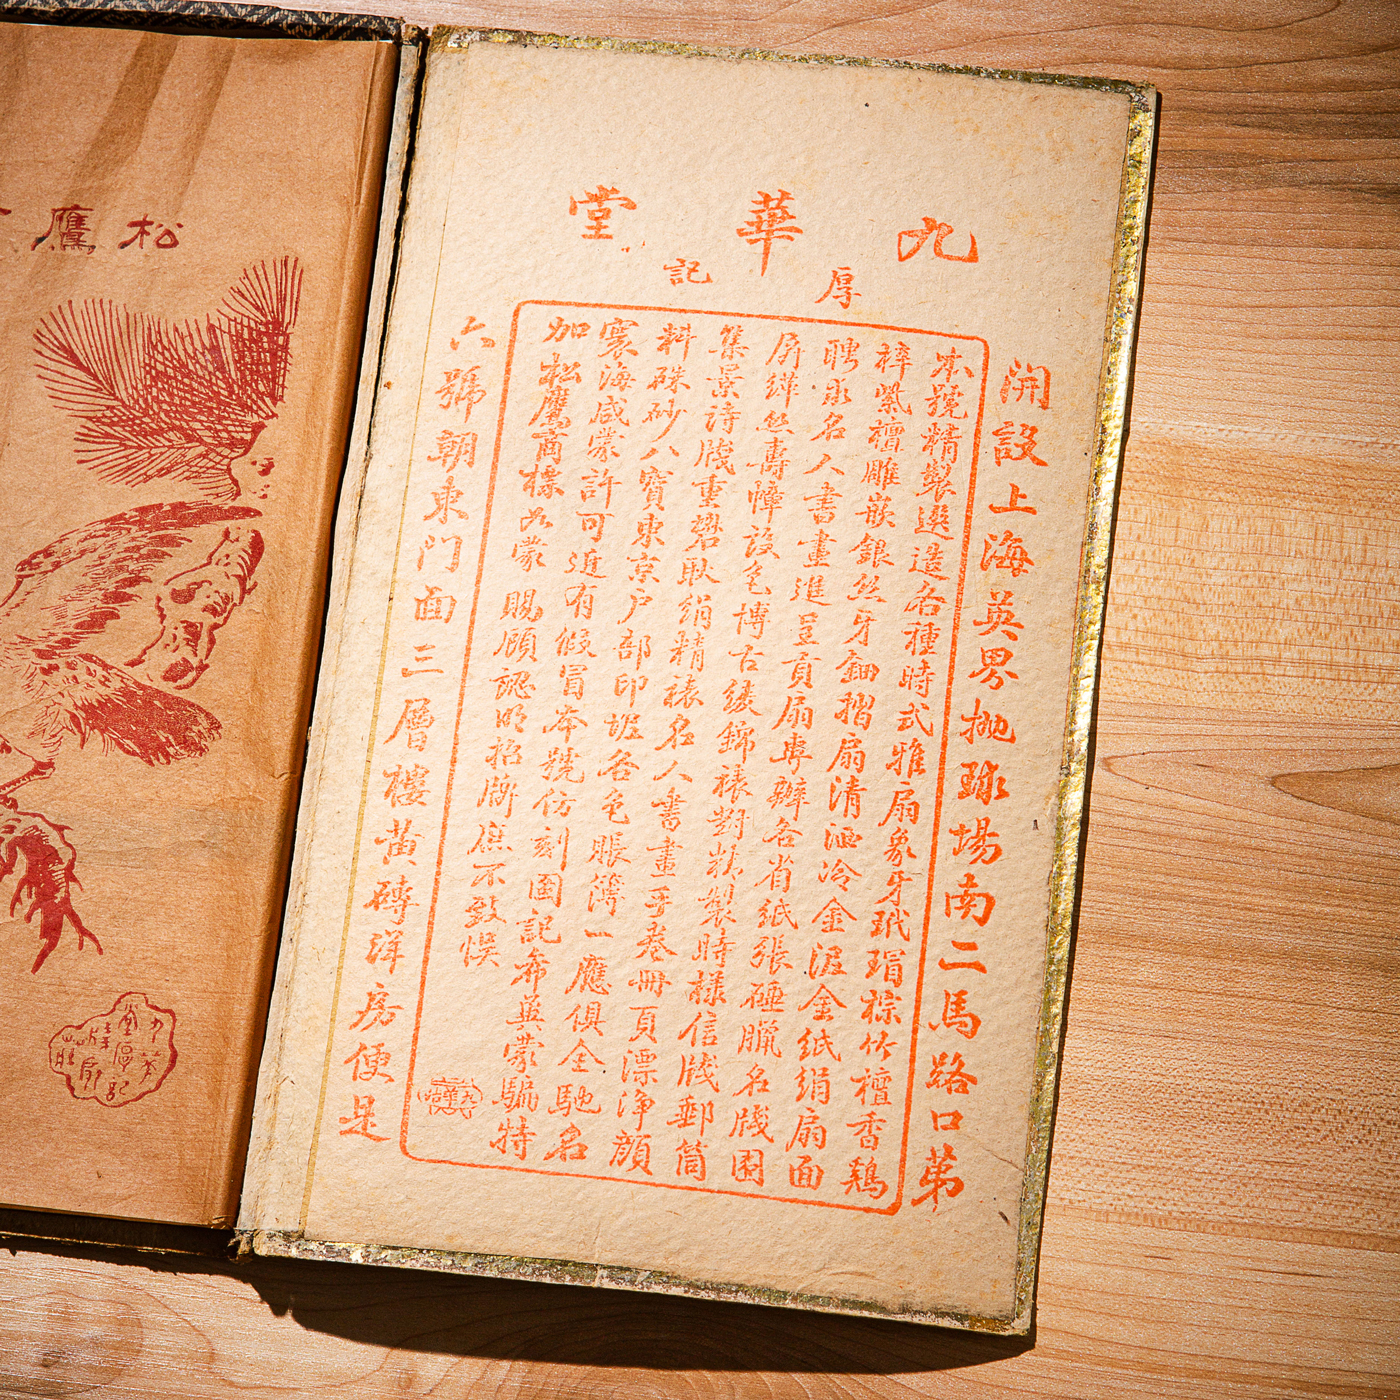 九華堂
厚記
開設上海英界拋球場南二馬路口第
本號精製選造各種時式雅扇象牙玳瑁棕竹檀香鷄
梓紫檀雕嵌銀絲牙鈿摺扇清洒冷金泥金紙絹扇面
聘求名人書畫進呈貢扇專辦各省紙張硾臘名牋圖
屏絲壽幛設色博古綾錦裱對精製時樣信牋郵筒
集景詩牋重礬耿絹精裱名人書畫手卷冊頁漂淨顏
料硃砂八寶東京户部印坭各色賬簿一應俱全馳名
寰海咸蒙許可近有假冒本號仿刻圖記希異蒙騙特
加松鷹商標如蒙賜顧認明招牌庶不致悮
六號朝東門面三層樓黃磚洋房便是
松鷹
九華堂厚記